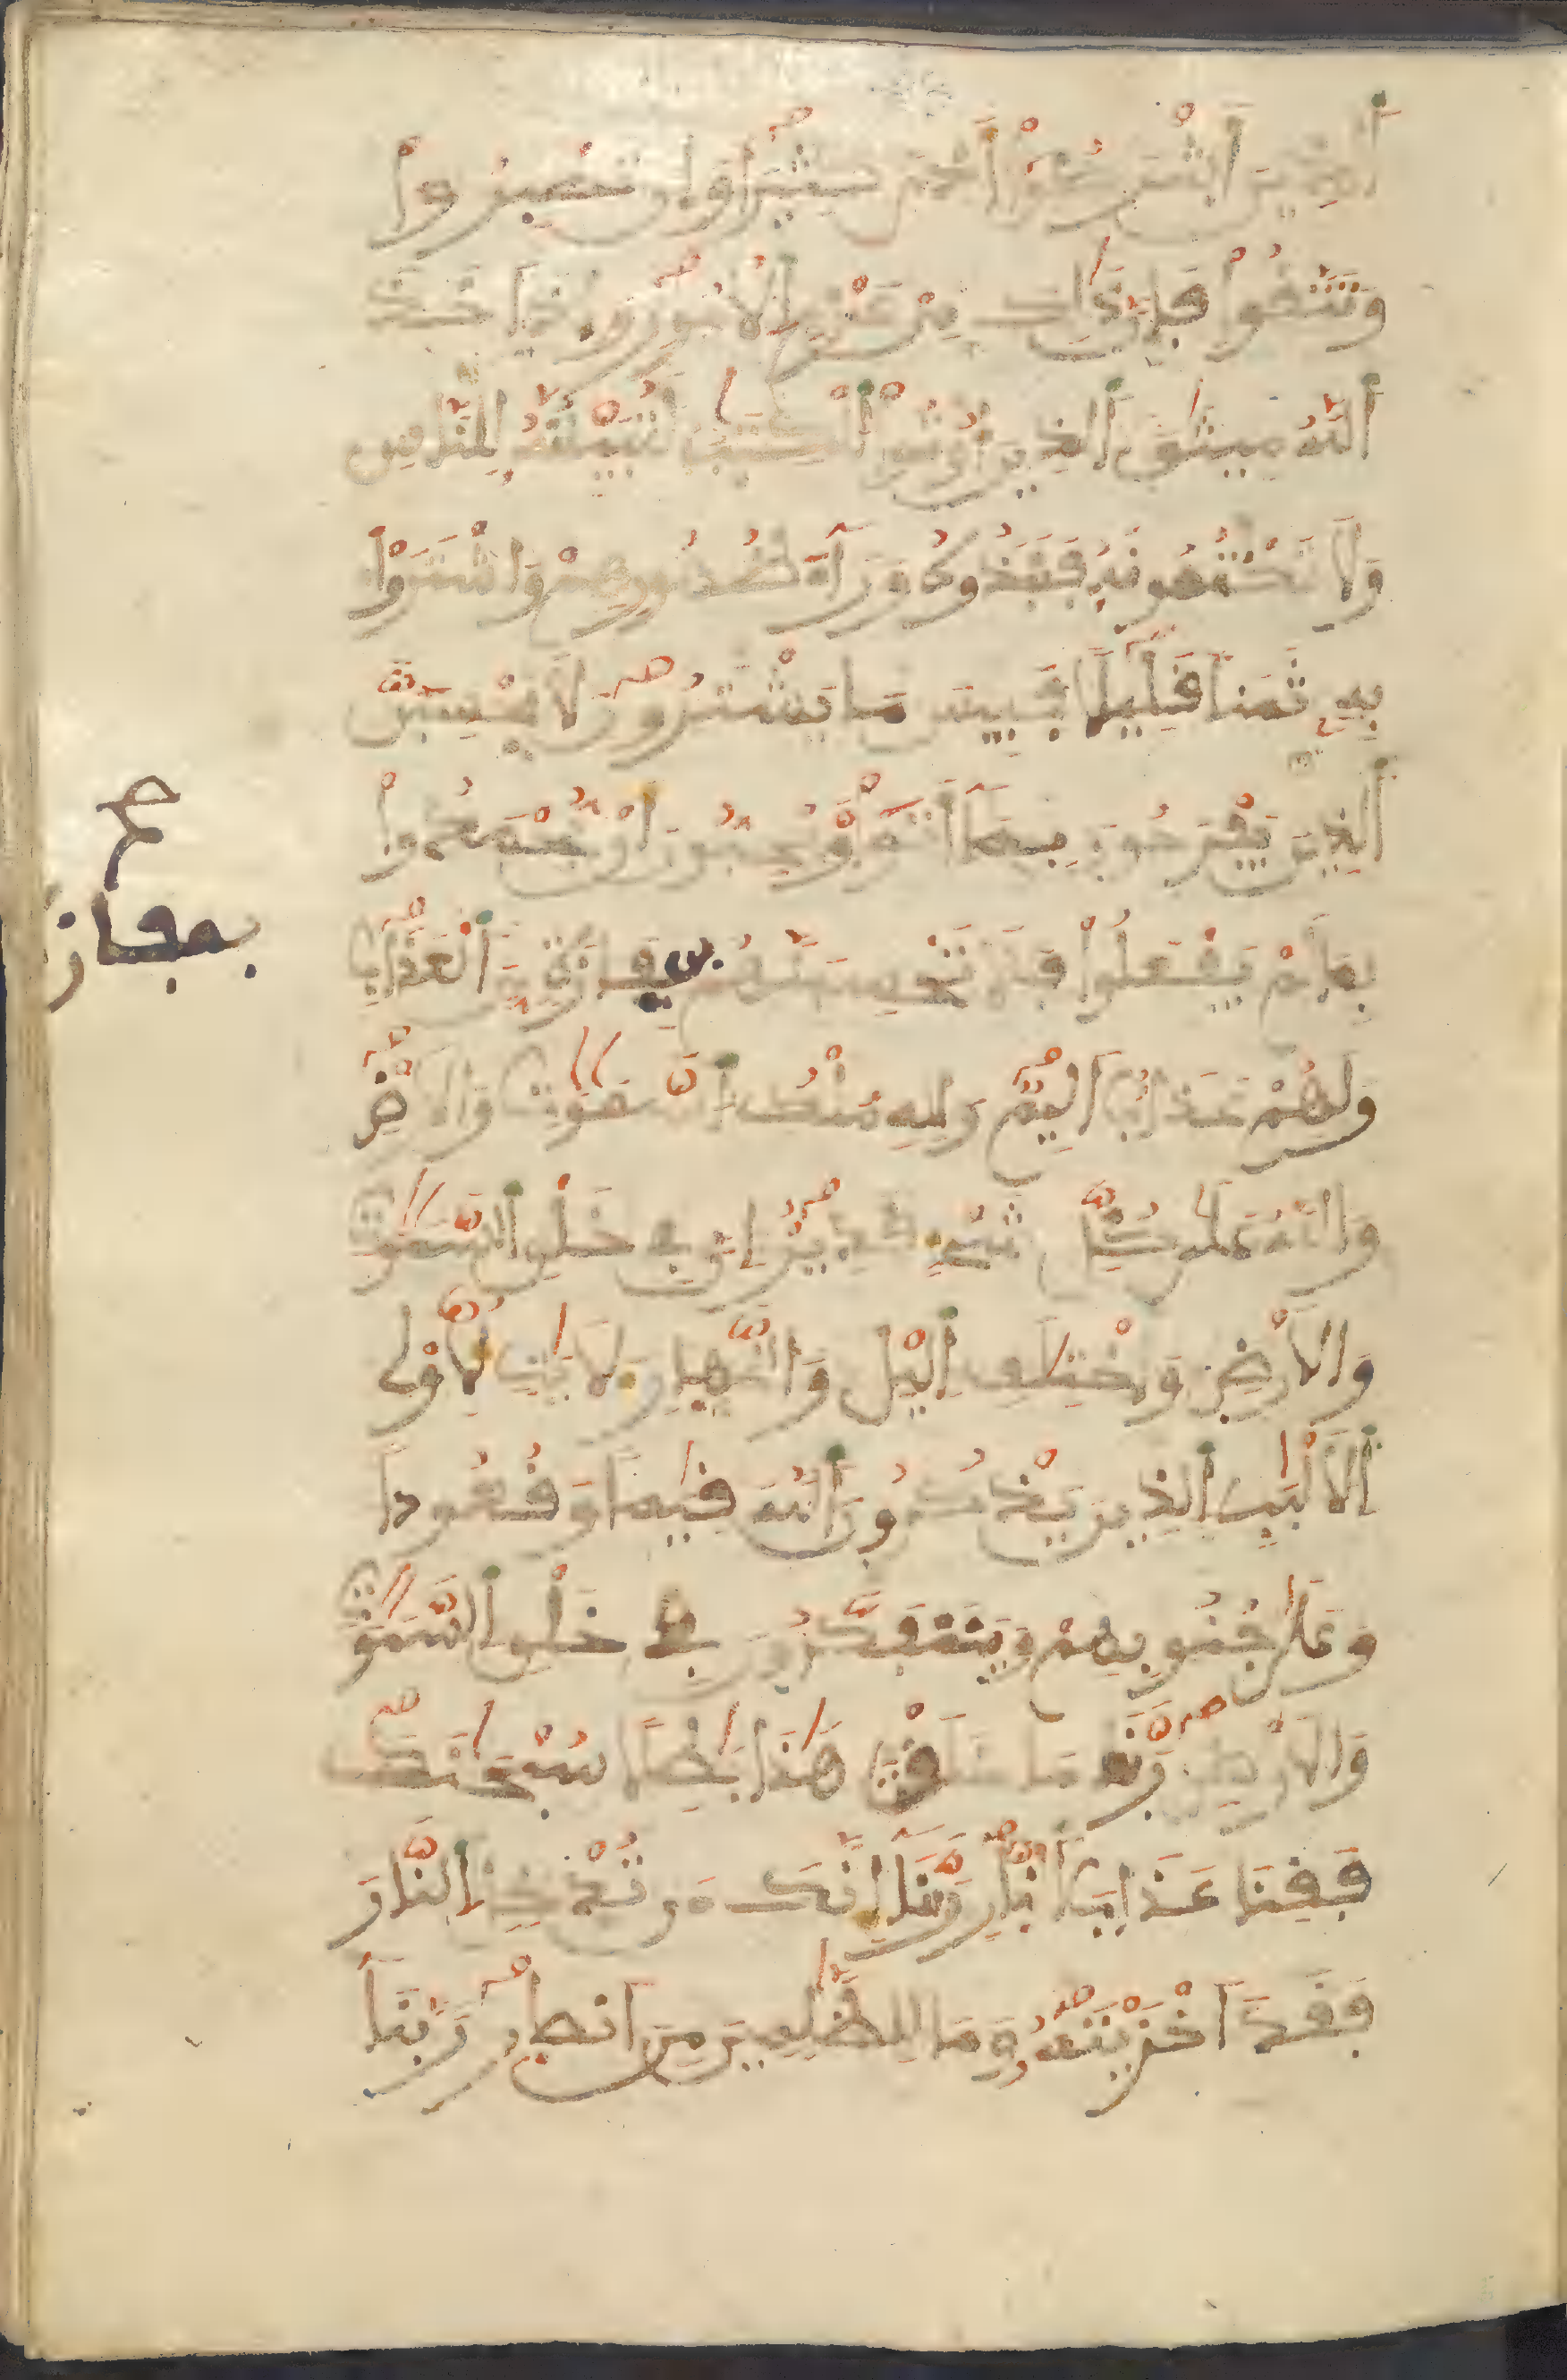 اَ۬لذِينَ أَشْرَكُوٓاْ أَذيً كَثِيراً وَإِن تَصْبِرُواْ
وَتَتَّقُواْ فَإِنَّ ذَٰلِكَ مِنْ عَزْمِ اِ۬لْأُمُورِ وَإِذَ اَخَذَ
اَ۬للَّهُ مِيثَٰقَ اَ۬لذِينَ أُوتُواْ اُ۬لْكِتَٰبَ لَتُبَيِّنُنَّهُۥ لِلنَّاسِ
وَلَا تَكْتُمُونَهُۥ فَنَبَذُوهُ وَرَآءَ ظُهُورِهِمْ وَاشْتَرَوْاْ
بِهِۦ ثَمَناً قَلِيلاً فَبِيسَ مَا يَشْتَرُونَ لَا يَحْسِبَنَّ
اَ۬لذِينَ يَفْرَحُونَ بِمَآ أَتَواْ وَّيُحِبُّونَ أَنْ يُّحْمَدُواْ
بِمَا لَمْ يَفْعَلُواْ فَلَا تَحْسِبَنَّهُم بِمَفَازَةٍ مِّنَ اَ۬لْعَذَابِ
وَلَهُمْ عَذَابٌ اَلِيمٌ وَلِلهِ مُلْكُ اُ۬لسَّمَٰوَٰتِ وَالَارْضِ
وَاللَّهُ عَلَىٰ كُلِّ شَےْءٍ قَدِيرٌ إِنَّ فِے خَلْقِ اِ۬لسَّمَٰوَٰتِ
وَالْأَرْضِ وَاخْتِلَٰفِ اِ۬ليْلِ وَالنَّهارِ لَأٓيَٰتٍ لِّأُوْلِے
اِ۬لْأَلْبَٰبِ اِ۬لذِينَ يَذْكُرُونَ اَ۬للَّهَ قِيَٰماً وَقُعُوداً
وَعَلَىٰ جُنُوبِهِمْ وَيَتَفَكَّرُونَ فِے خَلْقِ اِ۬لسَّمَٰوَٰتِ
وَالَارْضِ رَبَّنَا مَا خَلَقْتَ هَٰذَا بَٰطِلاً سُبْحَٰنَكَ
فَقِنَا عَذَابَ اَ۬لنّارِ رَبَّنَآ إِنَّكَ مَن تُدْخِلِ اِ۬لنَّارَ
فَقَدَ اَخْزَيْتَهُۥ وَمَا لِلظَّٰلِمِينَ مِنَ اَنصارٍ رَّبَّنَآ
صح
بمفازة